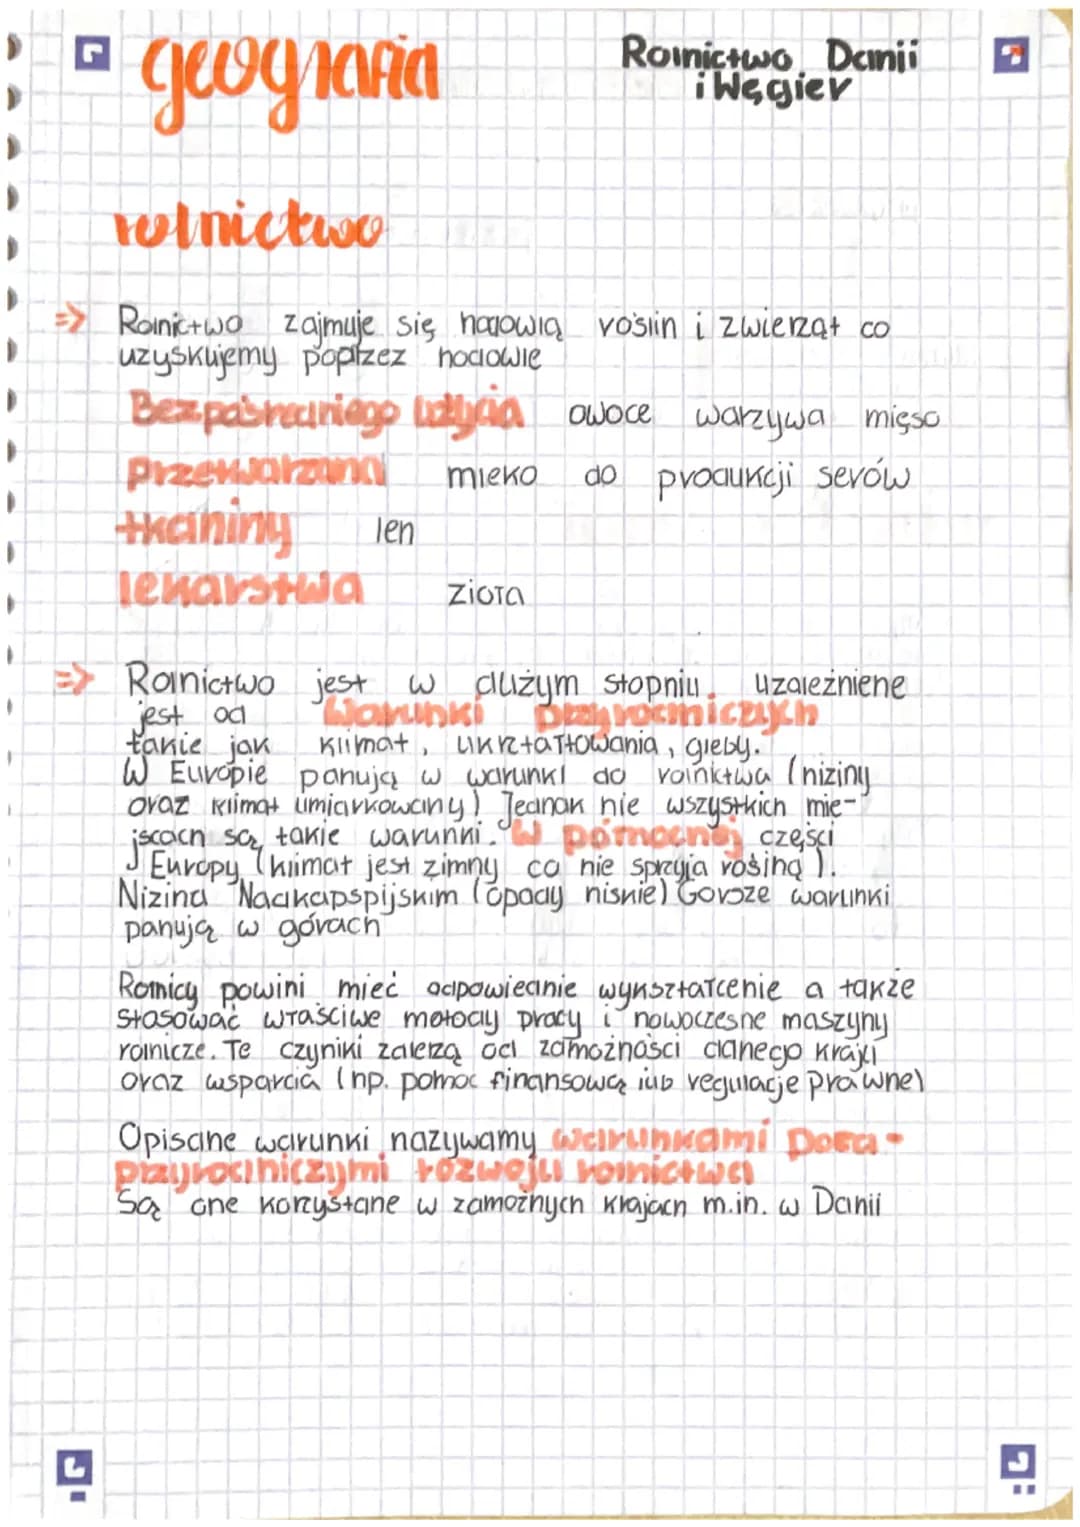 geografia
Rolnictwo Danii
i Węgier
rolnictwo
=> Rolnictwo zajmuje się hodowlą roślin i zwierząt co
uzyskujemy poprzez hodowle
Bezpośredniego użycia owoce warzywa mięso
przetwarzana mleko do produkcji serów
tkaniny len
lekarstwa zioła
=> Rolnictwo jest w dużym stopniu uzależnione
jest od Warunki przyrodniczych
takie jak klimat, ukrztałtowania, gleby.
W Europie panują w warunki do rolnictwa (niziny
oraz klimat umiarkowany) Jednak nie wszystkich mie-
jscach są takie warunki. W północnej części
Europy (klimat jest zimny co nie sprzyja rośliną).
Nizina Nadkapspijskim (opady niskie) Gorsze warunki
panują w górach
Rolnicy powini mieć odpowiednie wykształcenie a także
stosować właściwe metody pracy i nowoczesne maszyny
rolnicze. Te czyniki zależą od zamożności danego kraju
oraz wsparcia (np. pomoc finansową lub regulacje prawne)
Opisane warunki nazywamy warunkami poza-
przyrodniczymi rozwoju rolnictwa
Są one korzystane w zamożnych krajach m.in. w Danii